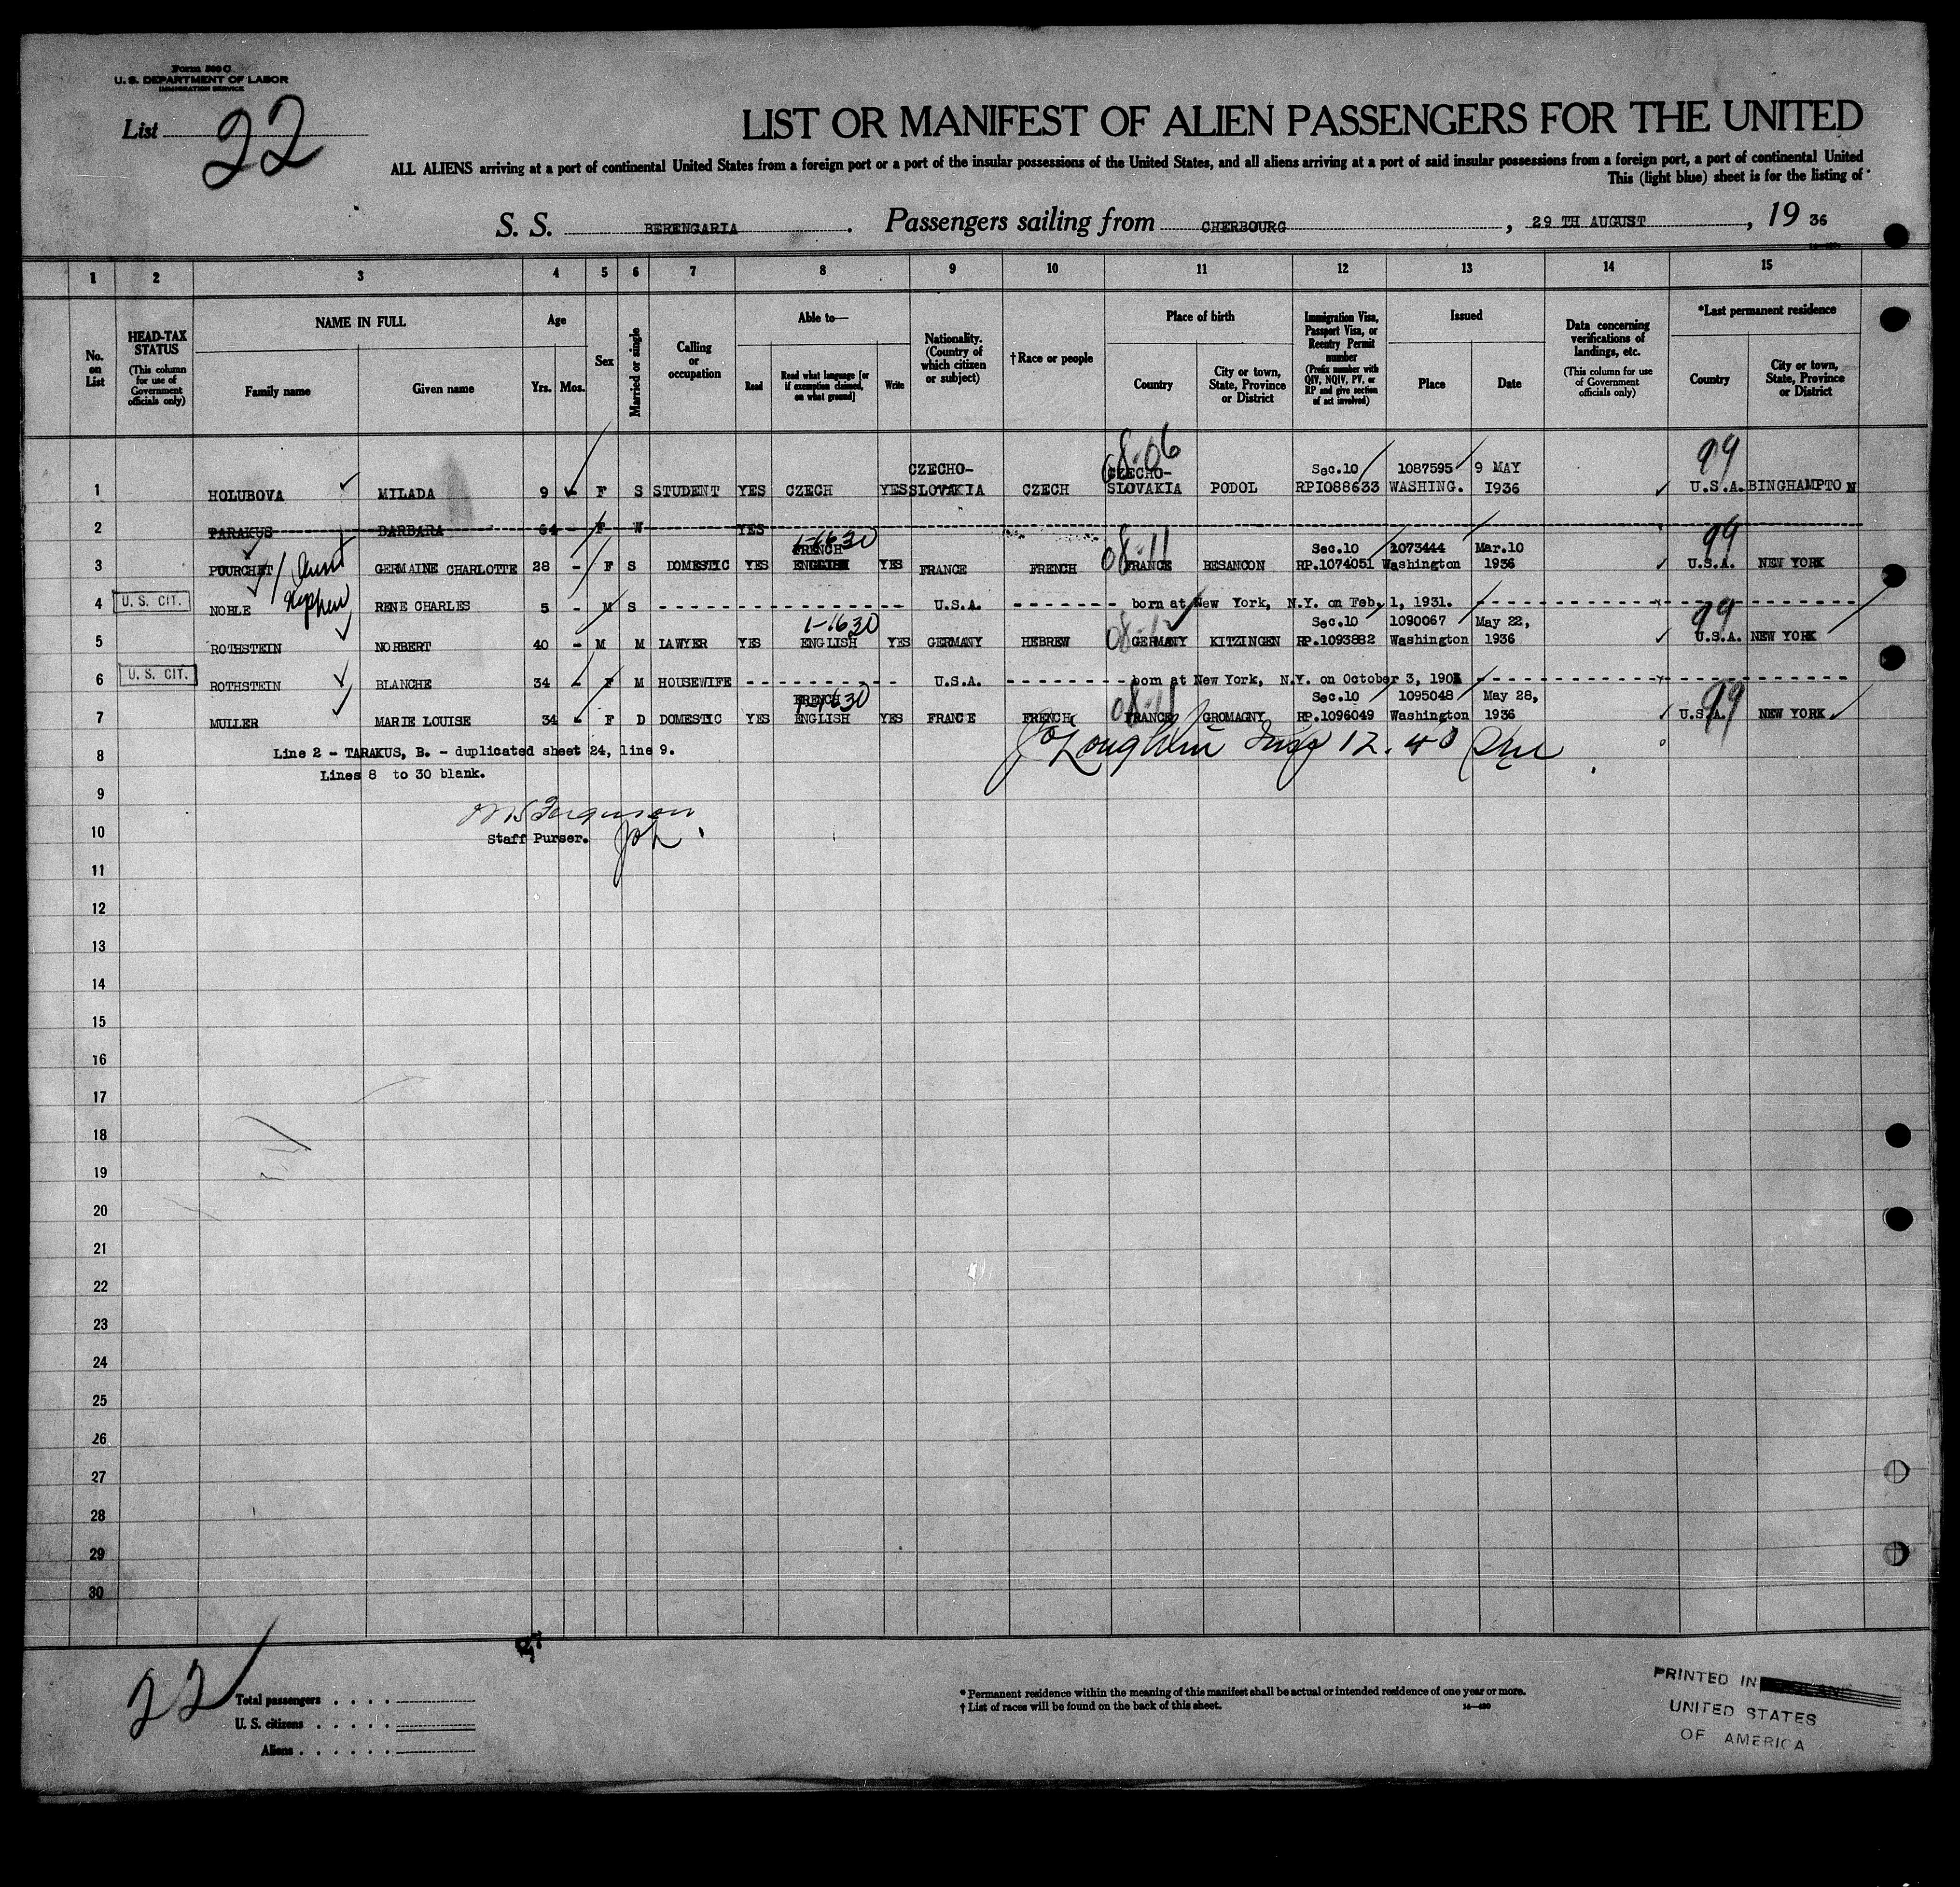 Form 500 C
U. S. DEPARTMENT OF LABOR
IMMIGRATION SERVICE
List 22
LIST OR MANIFEST OF ALIEN PASSENGERS FOR THE UNITED
ALL ALIENS arriving at a port of continental United States from a foreign port or a port of the insular possessions of the United States, and all aliens arriving at a port of said insular possessions from a foreign port, a port of continental United
This (light blue) sheet is for the listing of
S. S. BERENGARIA . Passengers sailing from CHERBOURG , 29 TH AUGUST , 19 36
1 2 3 4 5 6 7 8 9 10 11 12 13 14 15
No. on List
HEAD-TAX STATUS
(This column for use of Government officials only)
NAME IN FULL
Family name
Given name
Age
Yrs.
Mos.
Sex
Married or single
Calling or occupation
Able to—
Read
Read what language [or if exemption claimed, on what ground]
Write
Nationality. (Country of which citizen or subject)
†Race or people
Place of birth
Country
City or town, State, Province or District
Immigration Visa, Passport Visa, or Reentry Permit number
(Prefix number with QIV, NQIV, PV, or RP and give section of act involved)
Issued
Place
Date
Data concerning verifications of landings, etc.
(This column for use of Government officials only)
*Last permanent residence
Country
City or town, State, Province or District
08-06 99
CZECHO- CZECHO- Sec.10 1087595 9 MAY
1 HOLUBOVA MILADA 9 - F S STUDENT YES CZECH YES SLOVAKIA CZECH SLOVAKIA PODOL RP1088633 WASHING. 1936 U.S.A. BINGHAMPTON
2 TARAKUS BARBARA 64 - F W YES
1-1630 08-11 99
FRENCH Sec.10 1073444 Mar.10
3 POURCHET Aunt GERMAINE CHARLOTTE 28 - F S DOMESTIC YES ENGLISH YES FRANCE FRENCH FRANCE BESANCON RP.1074051 Washington 1936 U.S.A. NEW YORK
4 U. S. CIT. NOBLE Nephew RENE CHARLES 5 - M S U.S.A. born at New York, N.Y. on Feb. 1, 1931.
1-1630 08-12 99
Sec.10 1090067 May 22,
5 ROTHSTEIN NORBERT 40 - M M LAWYER YES ENGLISH YES GERMANY HEBREW GERMANY KITZINGEN RP.1093882 Washington 1936 U.S.A. NEW YORK
6 U. S. CIT. ROTHSTEIN BLANCHE 34 - F M HOUSEWIFE U.S.A. born at New York, N.Y. on October 3,
1-1630 08-11 99
FRENCH Sec.10 1095048 May 28,
7 MULLER MARIE LOUISE 34 - F D DOMESTIC YES ENGLISH YES FRANCE FRENCH FRANCE GROMAGNY RP.1096049 Washington 1936 U.S.A. NEW YORK
Line 2 - TARAKUS, B. - duplicated sheet 24, line 9.
8
Lines 8 to 30 blank.
9
Ferguson
10 Staff Purser.
11
12
13
14
15
16
17
18
19
20
21
22
23
24
25
26
27
28
29
30
22
Total passengers . . . .
U. S. citizens . . . . .
Aliens . . . . . .
* Permanent residence within the meaning of this manifest shall be actual or intended residence of one year or more.
† List of races will be found on the back of this sheet.
PRINTED IN
UNITED STATES
OF AMERICA